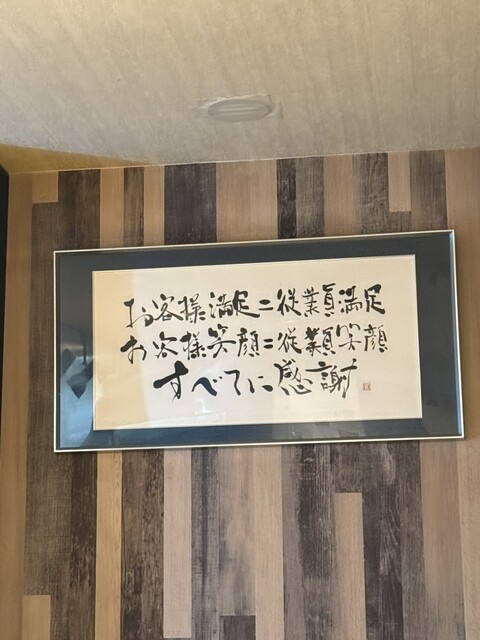 お客様満足=従業員満足
お客様笑顔=従業員笑顔
すべてに感謝